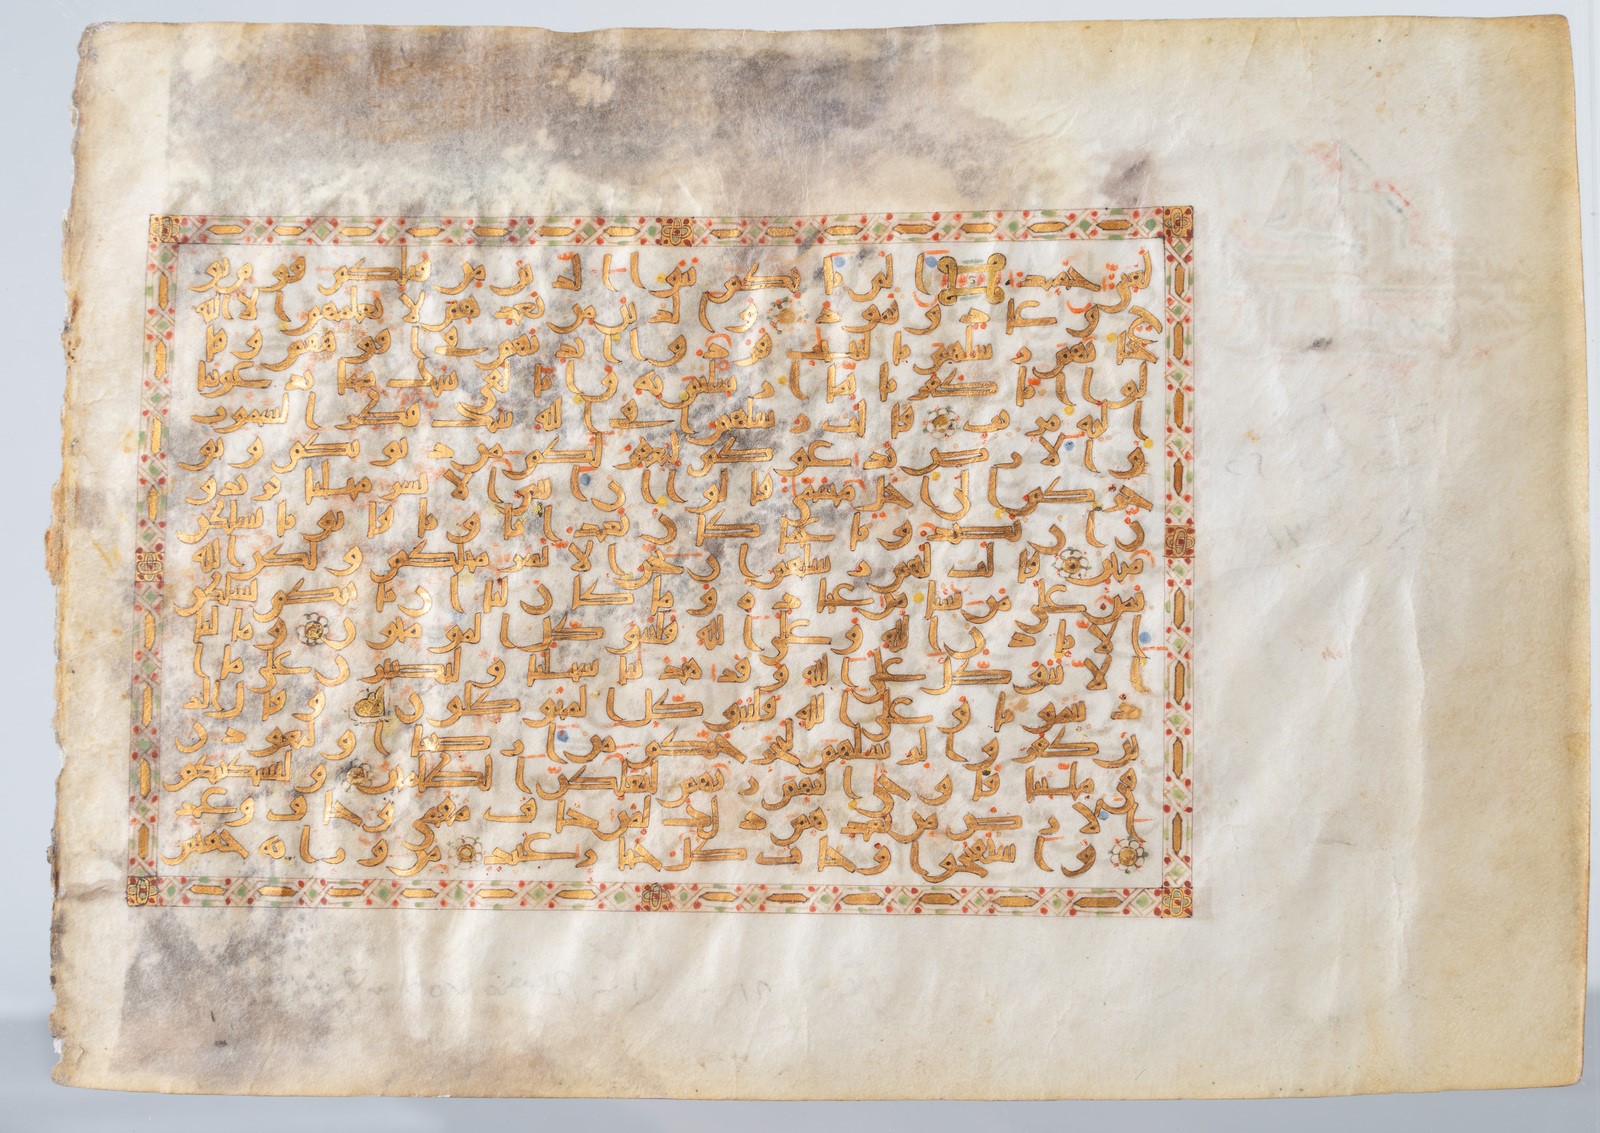 لغنى حميد الم ياتكم نبؤا الذين من قبلكم قوم نو
ح وعاد وثمود والذين من بعدهم لا يعلمهم الا الله
جاءتهم رسلهم بالبينت فردوا ايديهم فى افوههم وقا
لوا انا كفرنا بما ارسلتم به وانا لفى شك مما تدعوننا
اليه مريب قالت رسلهم افى الله شك فاطر السموت
والارض يدعوكم ليغفر لكم من ذنوبكم ويو
خركم الى اجل مسمى قالوا ان انتم الا بشر مثلنا تريدو
ن ان تصدونا عما كان يعبد اباونا فاتونا بسلطن
مبين قالت لهم رسلهم ان نحن الا بشر مثلكم ولكن الله
يمن على من يشا من عباده وما كان لنا ان ناتيكم بسلطن
الا باذن الله وعلى الله فليتوكل المومنون وما لنا
الا نتوكل على الله وقد هدنا سبلنا ولنصبرن على ما ا
ذيتمونا وعلى الله فليتوكل المتوكلون وقال الذ
ين كفروا لرسلهم لنخرجنكم من ارضنا او لتعودن
فى ملتنا فاوحى اليهم ربهم لنهلكن الظلمين ولنسكننكم
الارض من بعدهم ذلك لمن خاف مقامى وخاف وعيد
واستفتحوا وخاب كل جبار عنيد من ورائه جهنم